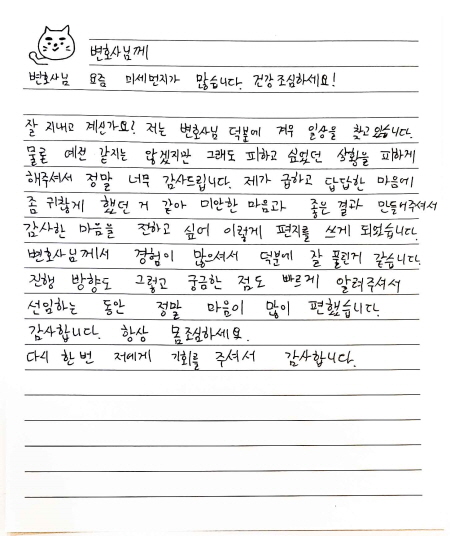 변호사님께
변호사님 요즘 미세먼지가 많습니다. 건강 조심하세요!
잘 지내고 계신가요? 저는 변호사님 덕분에 겨우 일상을 찾고있습니다.
물론 예전 같지는 않겠지만 그래도 피하고 싶었던 상황을 피하게
해주셔서 정말 너무 감사드립니다. 제가 급하고 답답한 마음에
좀 귀찮게 했던 거 같아 미안한 마음과 좋은 결과 만들어주셔서
감사한 마음을 전하고 싶어 이렇게 편지를 쓰게 되었습니다.
변호사님께서 경험이 많으셔서 덕분에 잘 풀린거 같습니다.
진행 방향도 그렇고 궁금한 점도 빠르게 알려주셔서
선임하는 동안 정말 마음이 많이 편했습니다.
감사합니다. 항상 몸조심하세요.
다시 한번 저에게 기회를 주셔서 감사합니다.